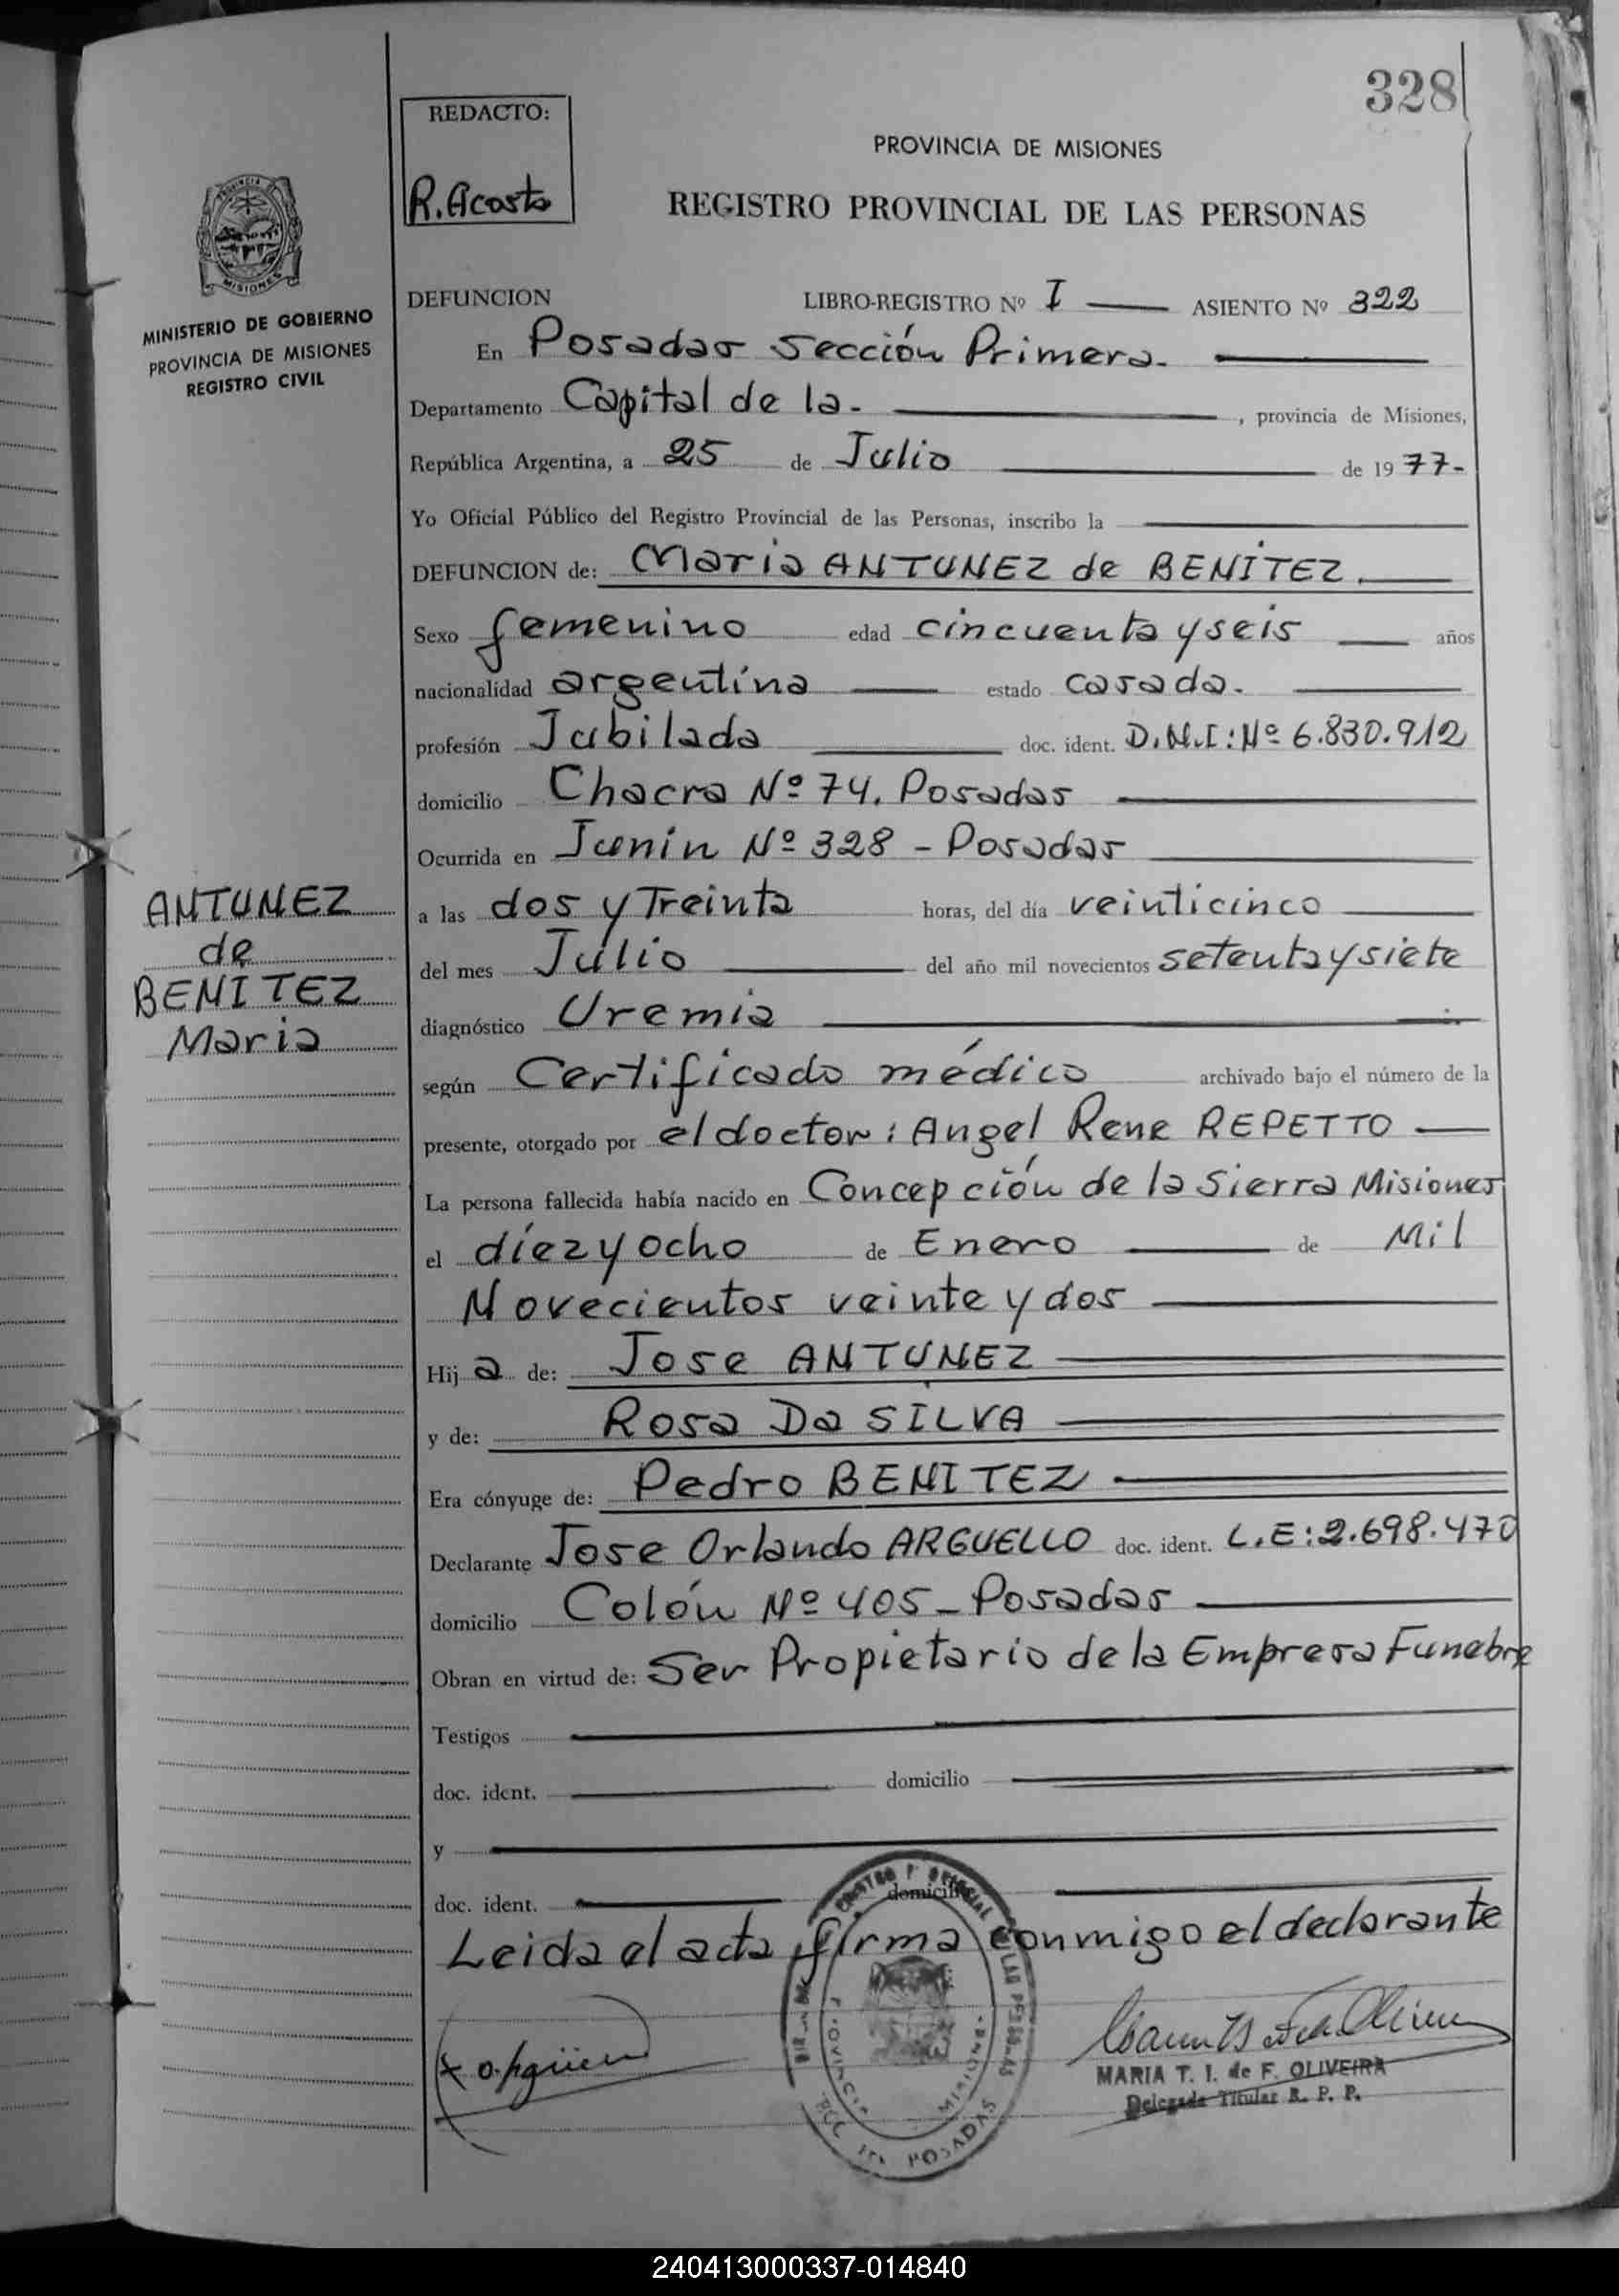 328
REDACTO:
R. Acosta
PROVINCIA DE MISIONES
REGISTRO PROVINCIAL DE LAS PERSONAS
MISIONES
MINISTERIO DE GOBIERNO
PROVINCIA DE MISIONES
REGISTRO CIVIL
DEFUNCION LIBRO-REGISTRO Nº I ASIENTO Nº 322
En Posadas Sección Primera.
Departamento Capital de la. , provincia de Misiones,
República Argentina, a 25 de Julio de 1977-
Yo Oficial Público del Registro Provincial de las Personas, inscribo la
DEFUNCION de: Maria ANTUNEZ de BENITEZ.
Sexo femenino edad cincuenta y seis años
nacionalidad argentina estado casada.
profesión Jubilada doc. ident. D.N.I: Nº 6.830.912
domicilio Chacra Nº 74, Posadas
Ocurrida en Junín Nº 328 - Posadas
ANTUNEZ
de
BENITEZ
Maria
a las dos y Treinta horas, del día veinticinco
del mes Julio del año mil novecientos setenta y siete
diagnóstico Uremia
según Certificado médico archivado bajo el número de la
presente, otorgado por el doctor: Angel Rene REPETTO
La persona fallecida había nacido en Concepción de la Sierra Misiones
el díez y ocho de Enero de Mil
Novecientos veinte y dos
Hija de: Jose ANTUNEZ
y de: Rosa Da SILVA
Era cónyuge de: Pedro BENITEZ
Declarante Jose Orlando ARGUELLO doc. ident. L.E: 2.698.470
domicilio Colón Nº 405 - Posadas
Obran en virtud de: Ser Propietario de la Empresa Funebre
Testigos
doc. ident. domicilio
y
doc. ident. domicili
Leida el acta firma conmigo el declarante
MARIA T. I. de F. OLIVEIRA
Delegada Titular R. P. P.
POSADAS
240413000337-014840